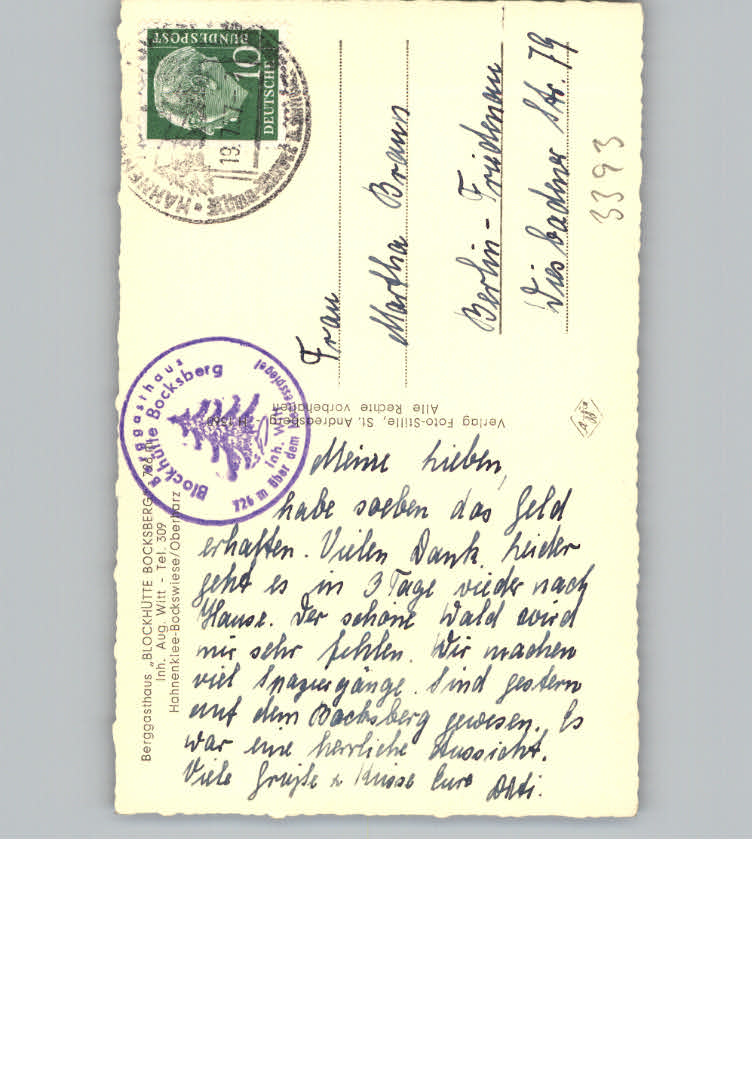 DEUTSCHE
BUNDESPOST
10
HAHNENKLEE
Frau
Martha Braun
Berlin-Friedenau
Wiesbadner Str. 79
3393
Berggasthaus
Blockhütte Bocksberg
Inh. Witt
726 m über dem Meeresspiegel
Berggasthaus „BLOCKHÜTTE BOCKSBERG"
Inh. Aug. Witt - Tel. 309
Hahnenklee-Bockswiese/Oberharz
Verlag Foto-Stille, St. Andreasberg
Alle Rechte vorbehalten
Meine Lieben,
habe soeben das Geld
erhalten. Vielen Dank. Leider
geht es in 3 Tage wieder nach
Hause. Der schöne Wald wird
mir sehr fehlen. Wir machen
viel Spaziergänge. Sind gestern
auf dem Bocksberg gewesen. Es
war eine herrliche Aussicht.
Viele Grüße u. Küsse Eure